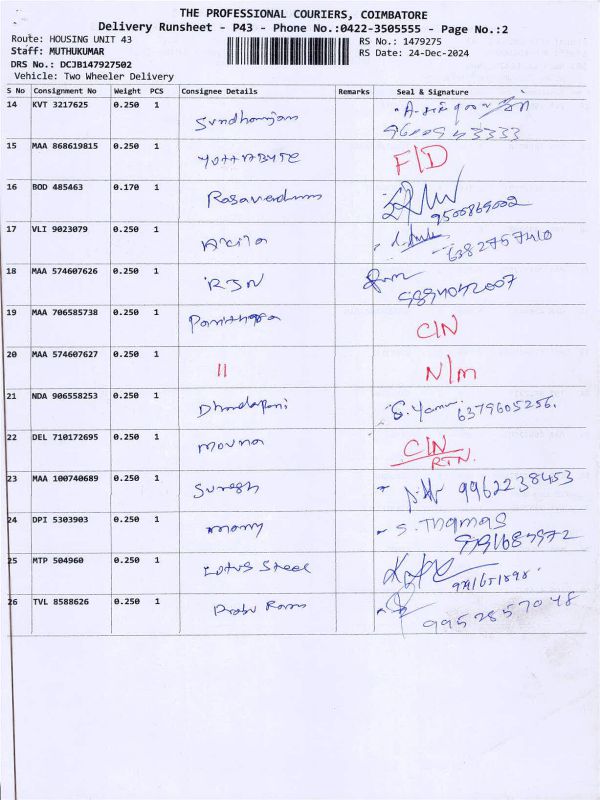 THE PROFESSIONAL COURIERS, COIMBATORE
Delivery Runsheet - P43 - Phone No.:0422-3505555 - Page No.:2
Route: HOUSING UNIT 43
RS No.: 1479275
Staff: MUTHUKUMAR
RS Date: 24-Dec-2024
DRS No.: DCJB147927502
Vehicle: Two Wheeler Delivery
S No Consignment No Weight PCS Consignee Details Remarks Seal & Signature
14 KVT 3217625 0.250 1
15 MAA 868619815 0.250 1 YOTTABYTE F/D
16 BOD 485463 0.170 1 9500869002
17 VLI 9023079 0.250 1 Akila 6382757410
18 MAA 574607626 0.250 1 RJN 9894042007
19 MAA 706585738 0.250 1 C/N
20 MAA 574607627 0.250 1 11 N/M
21 NDA 906558253 0.250 1 Dhandapani 6379605256.
22 DEL 710172695 0.250 1 Mouna C/N
RTN.
23 MAA 100740689 0.250 1 Suresh 9962238453
24 DPI 5303903 0.250 1 S. Thomas
25 MTP 504960 0.250 1 Lotus Steel
26 TVL 8588626 0.250 1 Prabu Ram 9952857048